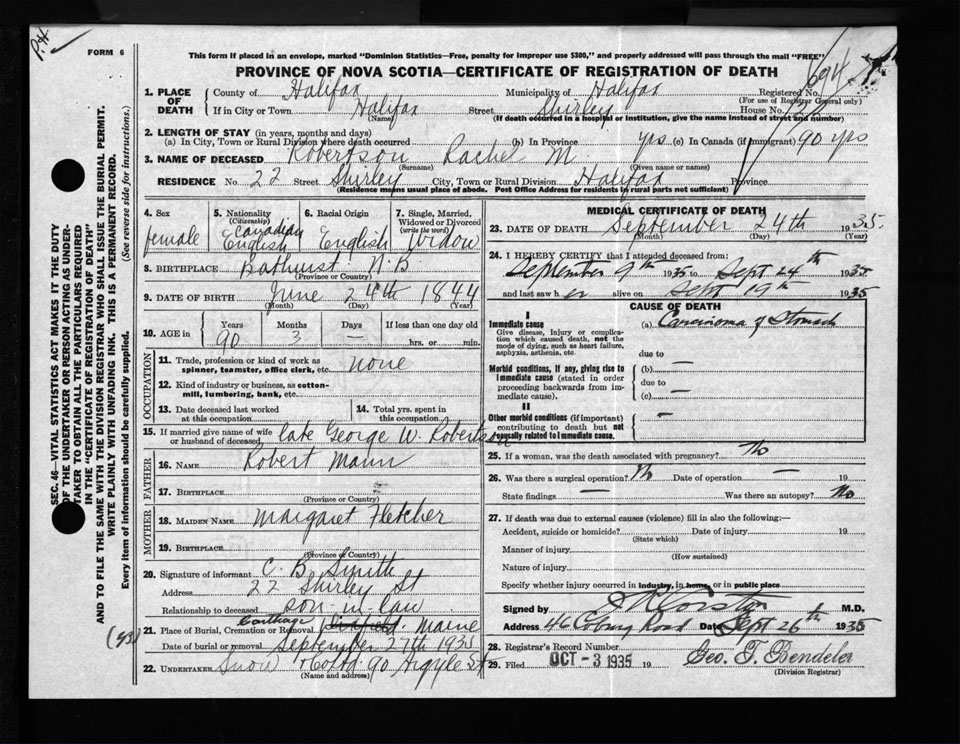 P.H.
FORM 6
This form if placed in an envelope, marked "Dominion Statistics—Free, penalty for improper use $300," and properly addressed will pass through the mail "FREE"
PROVINCE OF NOVA SCOTIA—CERTIFICATE OF REGISTRATION OF DEATH
694
1. PLACE OF DEATH
County of Halifax Municipality of Halifax Registered No.
(For use of Registrar General only)
If in City or Town Halifax Street Shirley House No. 22
(Name) (If death occurred in a hospital or institution, give the name instead of street and number)
2. LENGTH OF STAY (in years, months and days)
(a) In City, Town or Rural Division where death occurred (b) In Province yrs (c) In Canada (if immigrant) 90 yrs
3. NAME OF DECEASED Robertson Rachel M.
(Surname) (Given name or names)
RESIDENCE No. 22 Street Shirley City, Town or Rural Division Halifax Province
(Residence means usual place of abode. Post Office Address for residents in rural parts not sufficient)
4. Sex female
5. Nationality (Citizenship) Canadian English
6. Racial Origin English
7. Single, Married, Widowed or Divorced (write the word) Widow
8. BIRTHPLACE Bathurst N.B
(Province or Country)
9. DATE OF BIRTH June 24th 1844
(Month) (Day) (Year)
10. AGE in Years 90 Months 3 Days — If less than one day old hrs. or min.
OCCUPATION
11. Trade, profession or kind of work as spinner, teamster, office clerk, etc. none
12. Kind of industry or business, as cotton-mill, lumbering, bank, etc.
13. Date deceased last worked at this occupation
14. Total yrs. spent in this occupation
15. If married give name of wife or husband of deceased, late George W. Robertson
FATHER
16. NAME Robert Mann
17. BIRTHPLACE
(Province or Country)
MOTHER
18. MAIDEN NAME Margaret Fletcher
19. BIRTHPLACE
(Province or Country)
20. Signature of informant C. B. Smith
Address 22 Shirley St
Relationship to deceased son-in-law
21. Place of Burial, Cremation or Removal Carthage Maine
Date of burial or removal September 27th 1935
22. UNDERTAKER Snow & Co Ltd 90 Argyle St
(Name and address)
MEDICAL CERTIFICATE OF DEATH
23. DATE OF DEATH September 24th 1935
(Month) (Day) (Year)
24. I HEREBY CERTIFY that I attended deceased from;
September 9th 1935 to Sept 24th 1935
and last saw her alive on Sept 19th 1935
CAUSE OF DEATH
I
Immediate cause
Give disease, injury or complication which caused death, not the mode of dying, such as heart failure, asphyxia, asthenia, etc
(a) Carcinoma of Stomach
due to
Morbid conditions, if any, giving rise to immediate cause (stated in order proceeding backwards from immediate cause).
(b) —
due to
(c) —
II
Other morbid conditions (if important) contributing to death but not causally related to immediate cause.
—
25. If a woman, was the death associated with pregnancy? No
26. Was there a surgical operation? No Date of operation — 19
State findings — Was there an autopsy? No
27. If death was due to external causes (violence) fill in also the following:—
Accident, suicide or homicide? Date of injury 19
(State which)
Manner of injury
(How sustained)
Nature of injury
Specify whether injury occurred in industry, in home, or in public place
Signed by M.D.
Address 46 Coburg Road Date Sept 26th 1935
28. Registrar's Record Number
29. Filed OCT - 3 1935 19 Geo. T. Bendeler
(Division Registrar)
SEC. 46—VITAL STATISTICS ACT MAKES IT THE DUTY
OF THE UNDERTAKER OR PERSON ACTING AS UNDER-
TAKER TO OBTAIN ALL THE PARTICULARS REQUIRED
IN THE "CERTIFICATE OF REGISTRATION OF DEATH"
AND TO FILE THE SAME WITH THE DIVISION REGISTRAR WHO SHALL ISSUE THE BURIAL PERMIT.
WRITE PLAINLY WITH UNFADING INK. THIS IS A PERMANENT RECORD.
Every item of information should be carefully supplied. (See reverse side for instructions.)